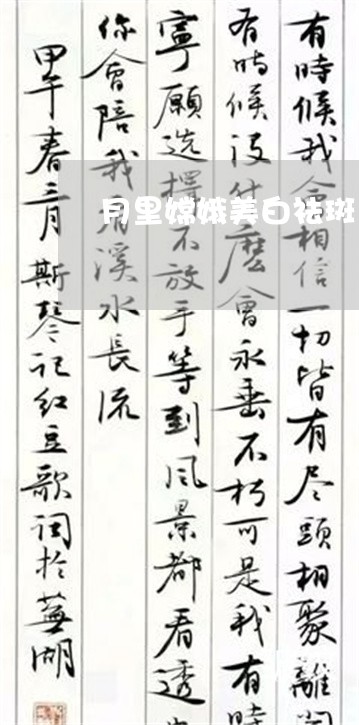 有時候我会相信一切皆有尽頭相聚離
有時候没什麽會永垂不朽可是我有時
寧願选擇不放手等到风景都看透
你會陪我看溪水長流
甲午春三月斯琴记红豆歌词於蕪湖
月里嫦娥美白祛斑